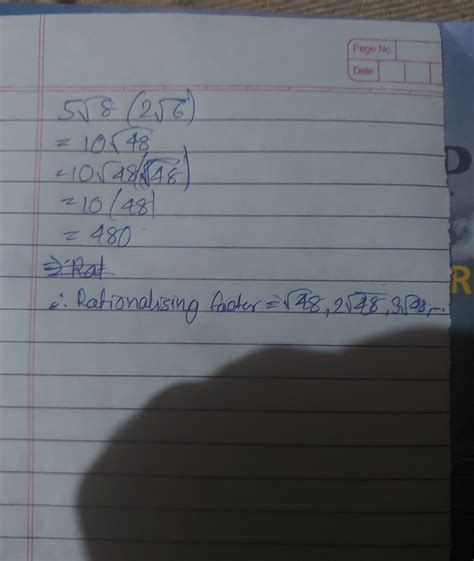 Page No.
Date
5√8 (2√6)
= 10√48
= 10√48(√48)
= 10(48)
= 480
D
R
∴ Rationalising factor = √48, 2√48, 3√48, ...